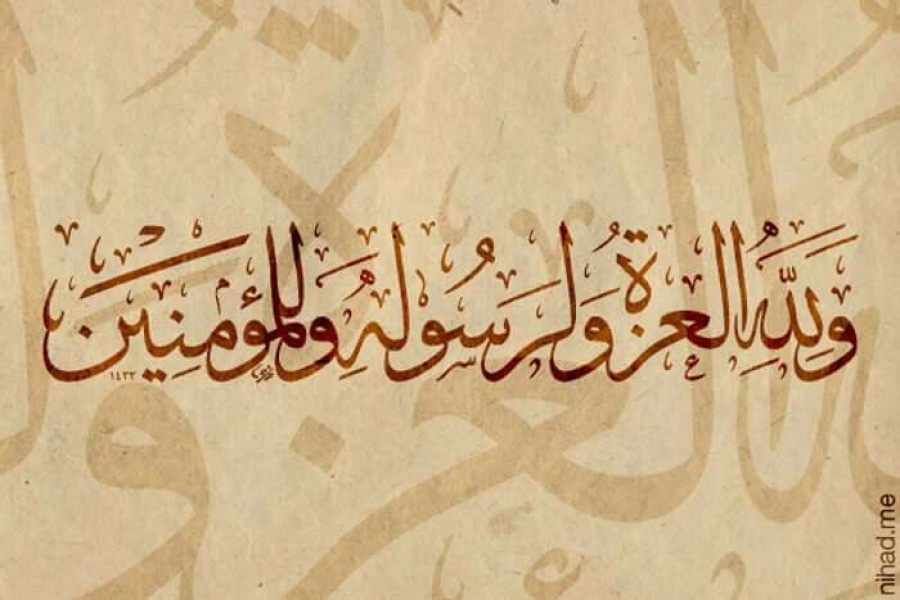 وَلِلَّهِ الْعِزَّةُ وَلِرَسُولِهِ وَلِلْمُؤْمِنِينَ
١٤٣٣
nihad.me